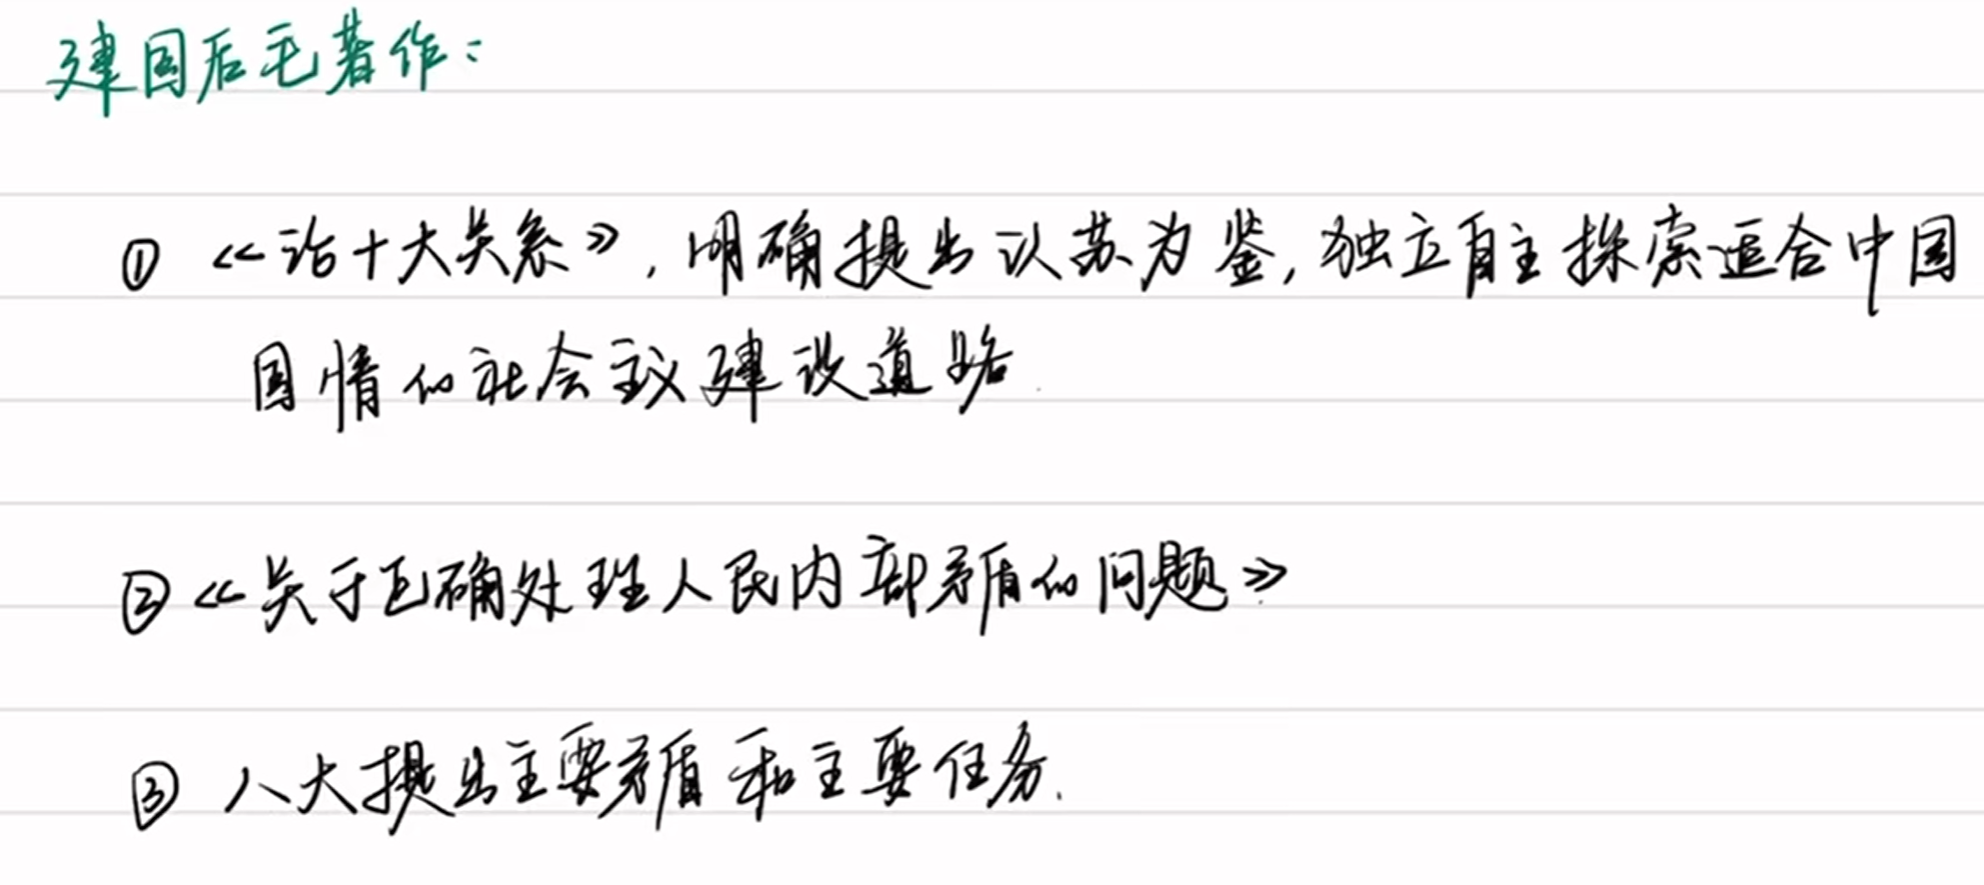 建国后毛著作：
① 《论十大关系》，明确提出以苏为鉴，独立自主探索适合中国
国情的社会主义建设道路.
② 《关于正确处理人民内部矛盾的问题》
③ 八大提出主要矛盾和主要任务.